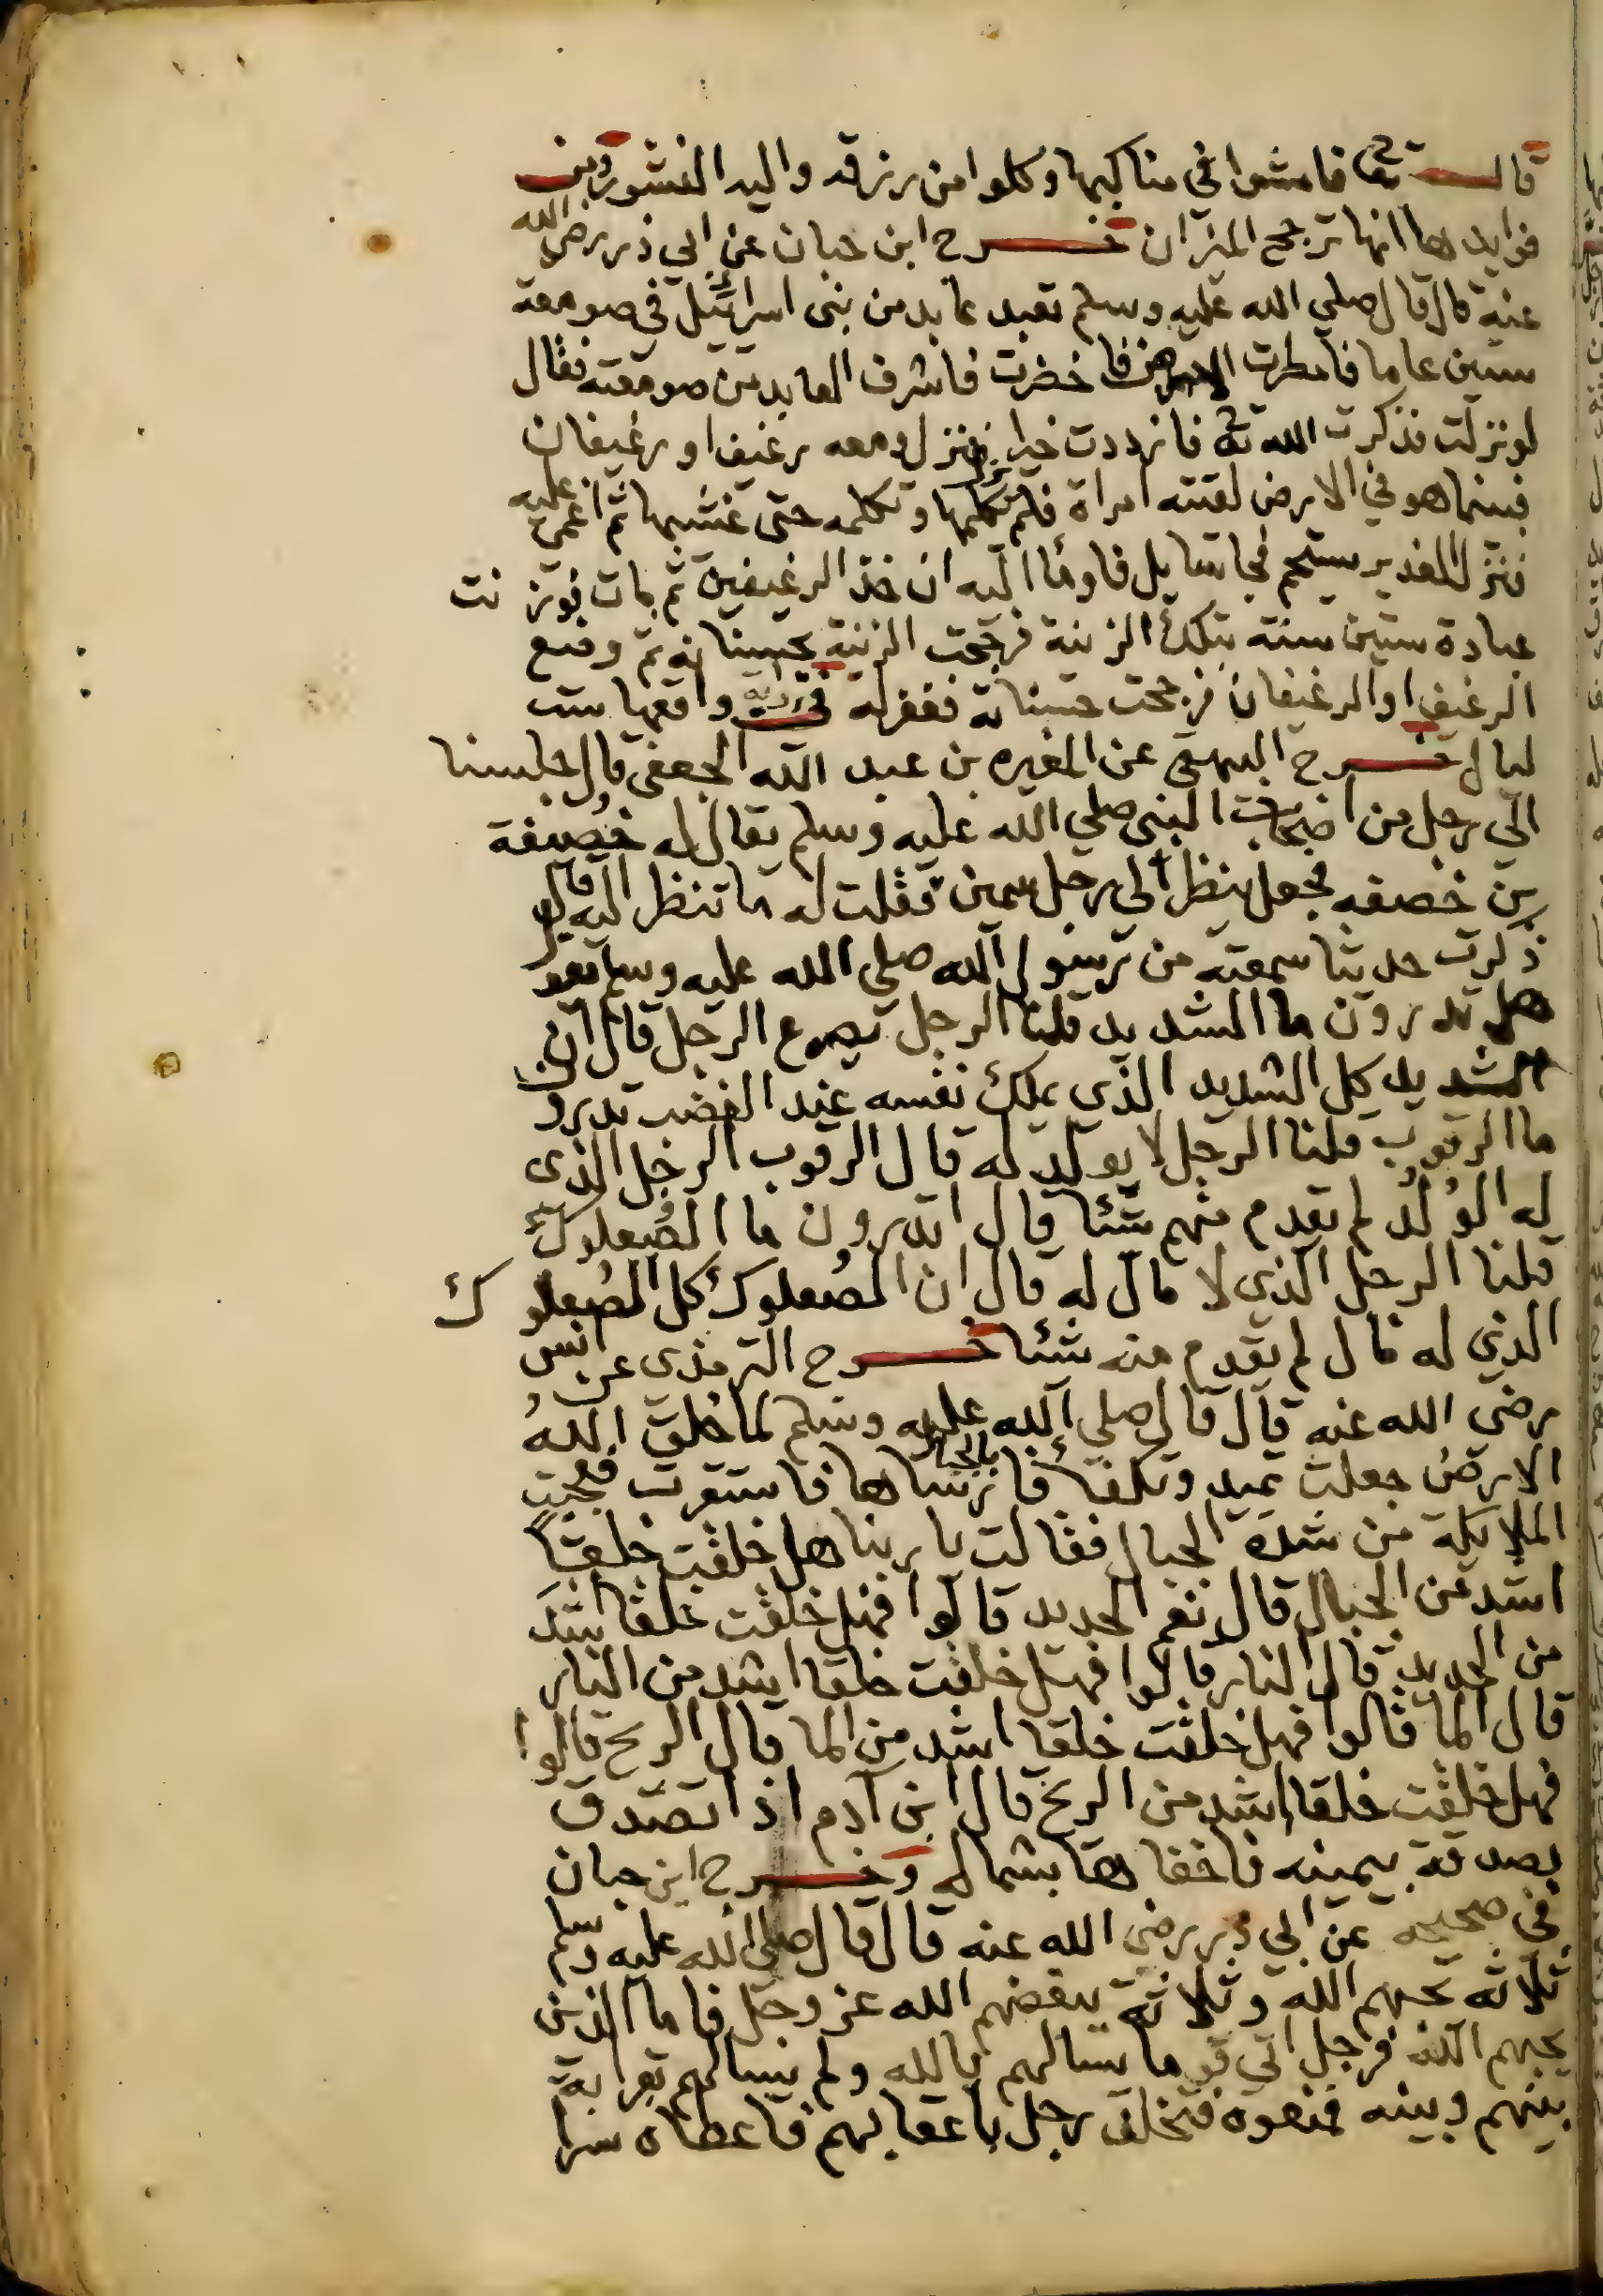 قال تعالى فامشوا في مناكبها وكلوا من رزقه واليه النشور ومن
فوايدها انها ترجح الميزان خرج ابن حبان عن ابي ذر رضي الله
عنه قال قال صلي الله عليه وسلم تعبد عابد من بني اسرائيل في صومعة
ستين عاما فامطرت الارض فاخضرت فاشرف العابد من صومعته فقال
لو نزلت فذكرت الله تعالى فازددت خيرا فنزل ومعه رغيف او رغيفان
فبينما هو في الارض لقيته امراة فلم يزل يكلمها وتكلمه حتى غشيها ثم اغمي عليه
فنزل الغدير يستحم فجا سايل فاوما اليه ان خذ الرغيفين ثم مات فوزنت
عبادة ستين سنة بتلك الزنية فرجحت الزنية بحسناته ثم وضع
الرغيف او الرغيفان فرجحت حسناته فغفر له واقعها ست
ليال خرج البيهقي عن المغيره بن عبد الله الجعفي قال جلسنا
الي رجل من اصحاب النبي صلي الله عليه وسلم يقال له خصيفة
بن خصفه فجعل ينظر الى رجل سمين فقلت له ما تنظر اليه قال
ذكرت حديثا سمعته من رسول الله صلي الله عليه وسلم يقول
هل تدرون ما الشديد قلنا الرجل يصرع الرجل قال ان
الشديد كل الشديد الذي يملك نفسه عند الغضب تدرون
ما الرقوب قلنا الرجل لا يولد له قال الرقوب الرجل الذي
له الولد لم يقدم منهم شئا قال اتدرون ما الصعلوك
قلنا الرجل الذي لا مال له قال ان الصعلوك كل الصعلوك
الذي له مال لم يقدم منه شئا خرج الترمذي عن انس
رضي الله عنه قال قال صلي الله عليه وسلم لما خلق الله
الارض جعلت تميد وتكفا فارساها بالجبال فاستقرت فعجبت
الملايكة من شدة الجبال فقالت يا ربنا هل خلقت خلقا
اشد من الجبال قال نعم الحديد قالوا فهل خلقت خلقا اشد
من الحديد قال النار قالوا فهل خلقت خلقا اشد من النار
قال الما قالوا فهل خلقت خلقا اشد من الما قال الريح قالوا
فهل خلقت خلقا اشد من الريح قال ابن آدم اذا تصدق
بصدقة بيمينه فاخفاها بشماله وخرج ابن حبان
في صحيحه عن ابي ذر رضي الله عنه قال قال صلي الله عليه وسلم
ثلاثه يحبهم الله وثلاثة يبغضهم الله عز وجل فاما الذين
يحبهم الله فرجل اتي قوما يسالهم بالله ولم يسالهم بقرابة
بينهم وبينه فمنعوه فتخلف رجل باعقابهم فاعطاه سرا